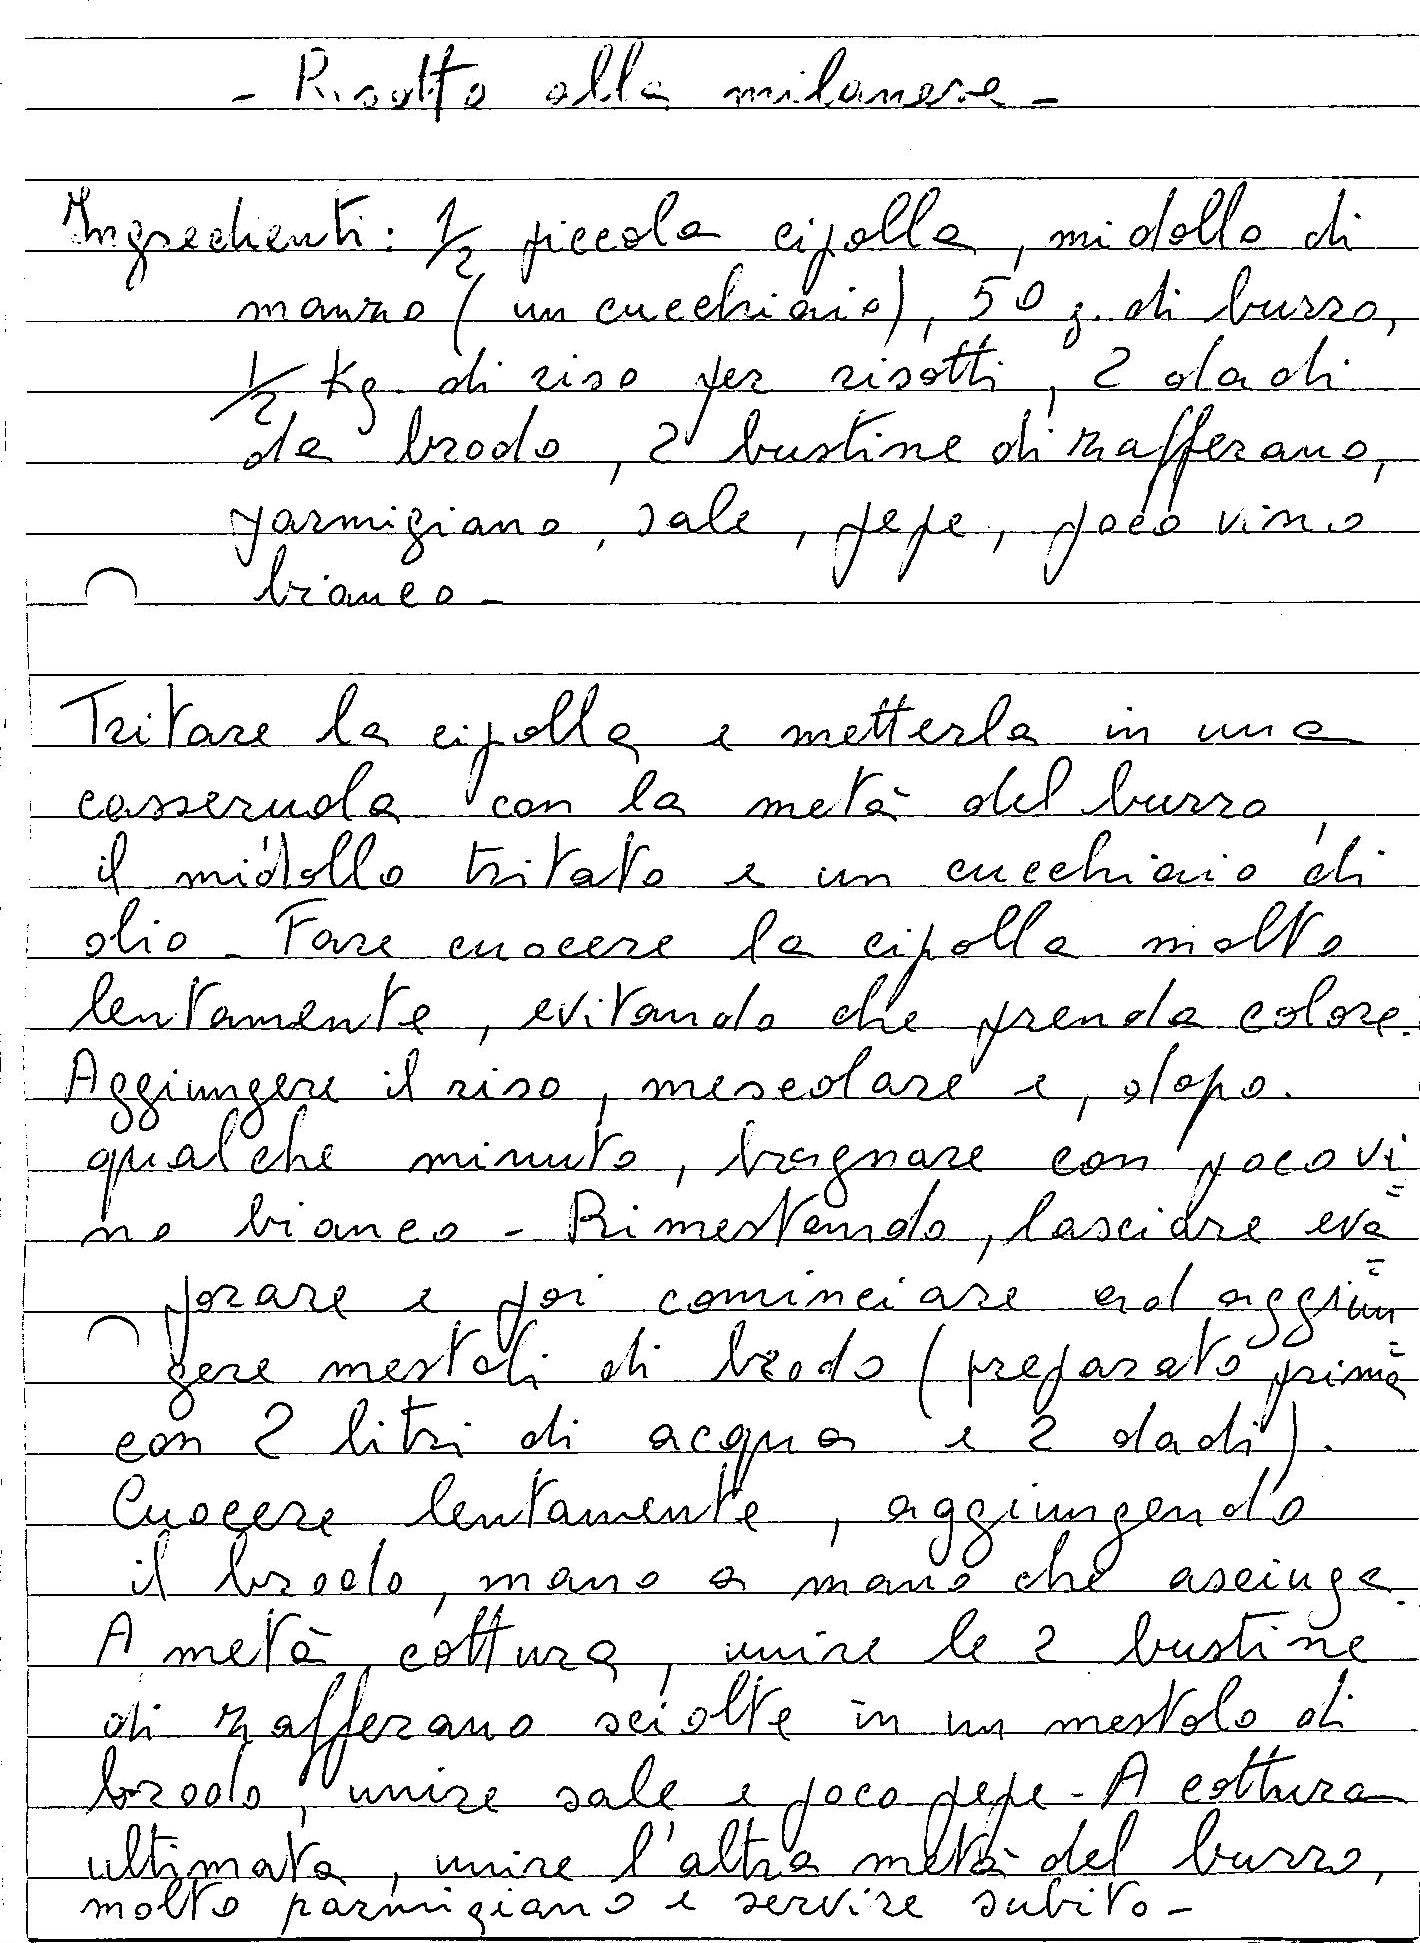 - Risotto alla milanese -
Ingredienti: 1/2 piccola cipolla, midollo di
manzo (un cucchiaio), 50 g. di burro,
1/2 Kg. di riso per risotti, 2 dadi
da brodo, 2 bustine di zafferano,
parmigiano, sale, pepe, poco vino
bianco -
Tritare la cipolla e metterla in una
casseruola con la metà del burro,
il midollo tritato e un cucchiaio di
olio - Fare cuocere la cipolla molto
lentamente, evitando che prenda colore.
Aggiungere il riso, mescolare e, dopo.
qualche minuto, bagnare con poco vi=
no bianco - Rimestando, lasciare eva=
porare e poi cominciare ad aggiun=
gere mestoli di brodo (preparato prima
con 2 litri di acqua e 2 dadi).
Cuocere lentamente, aggiungendo
il brodo, mano a mano che asciuga.
A metà cottura, unire le 2 bustine
di zafferano sciolte in un mestolo di
brodo, unire sale e poco pepe - A cottura
ultimata, unire l'altra metà del burro,
molto parmigiano e servire subito -